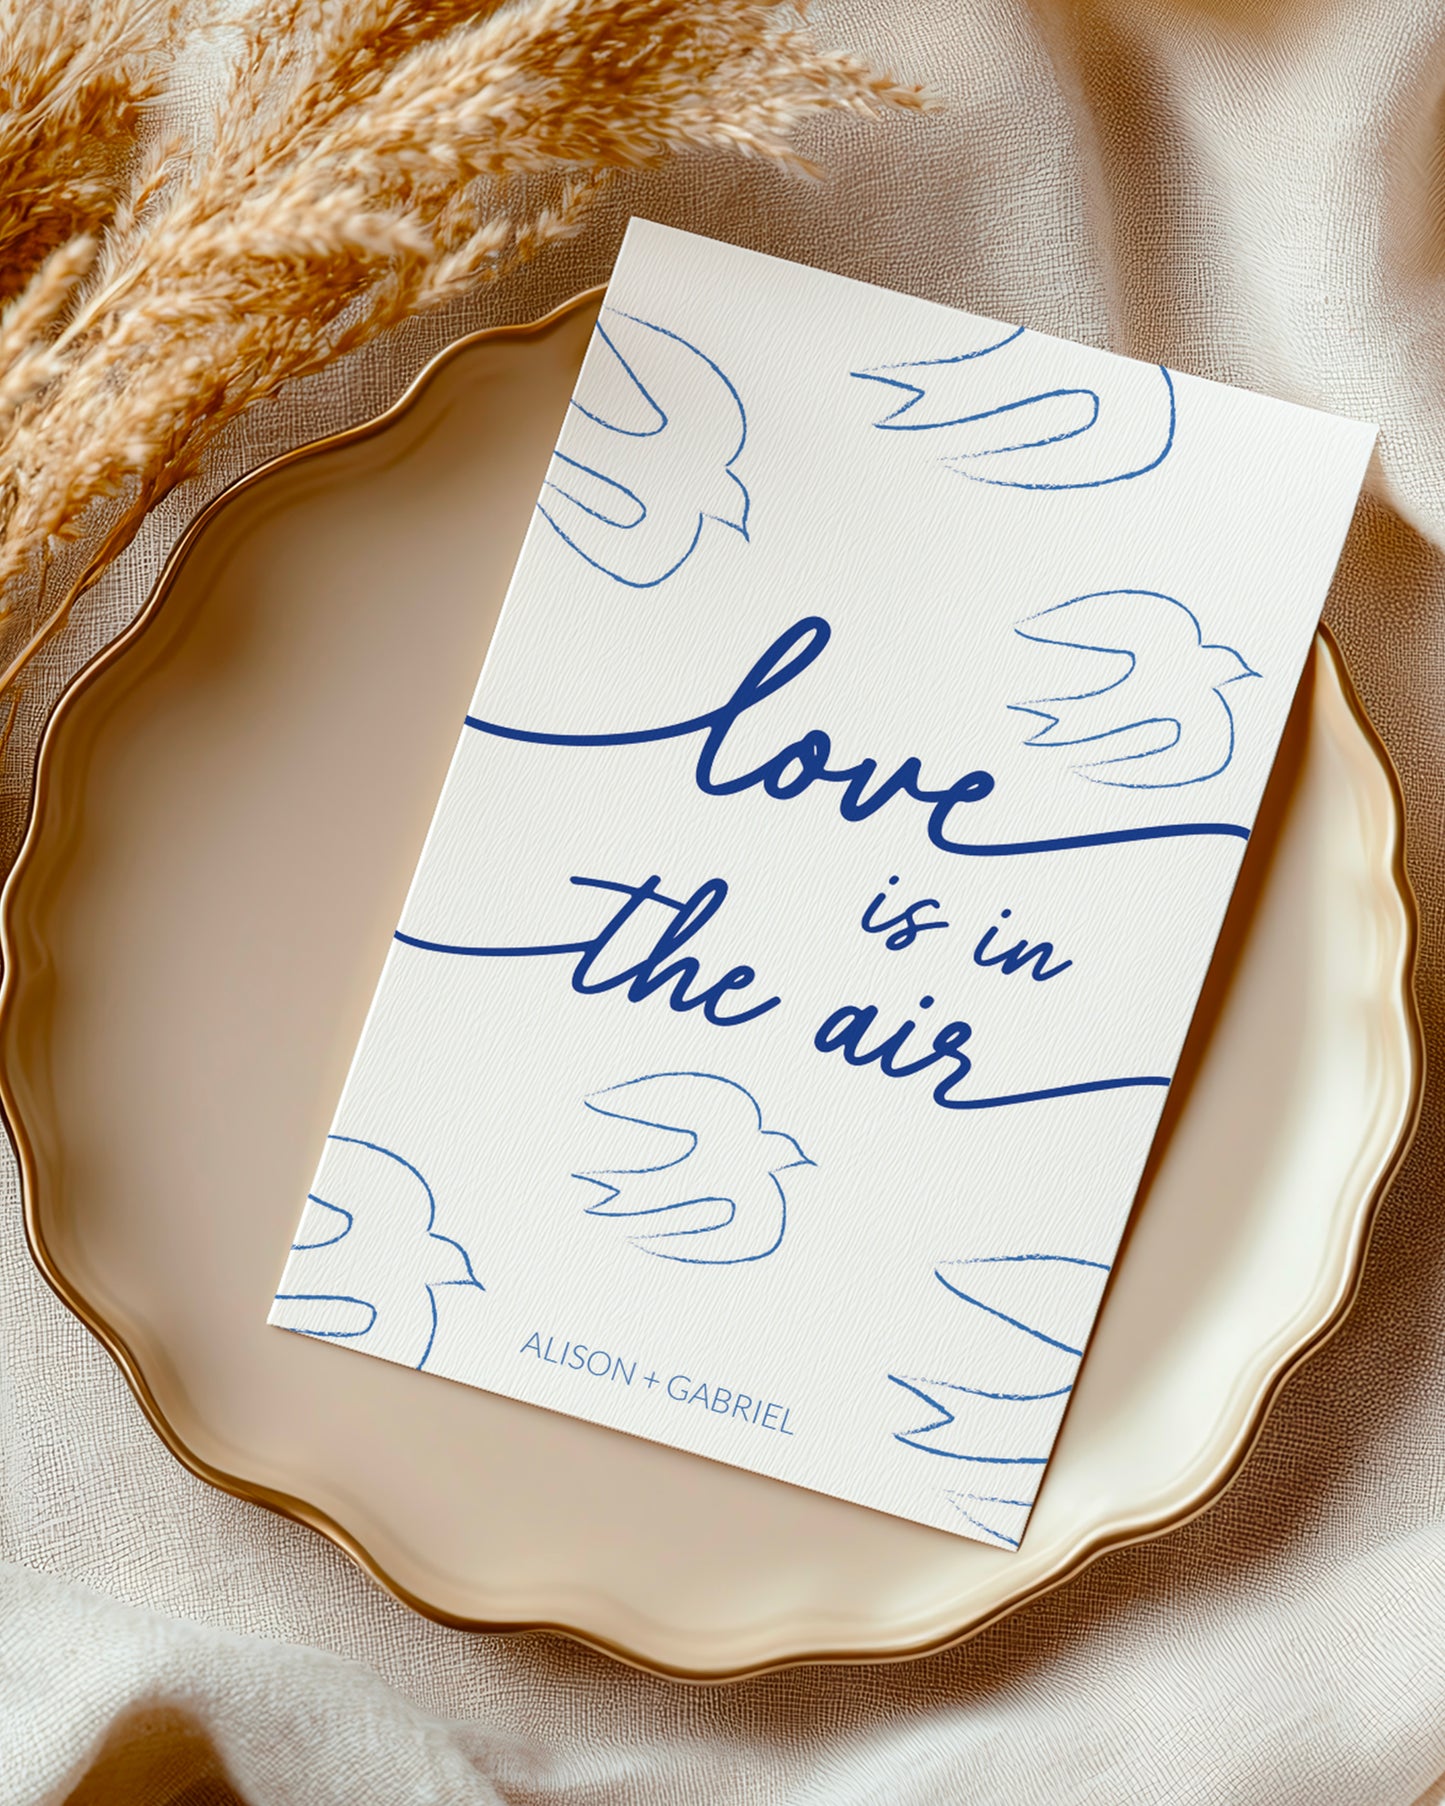 love
is in
the air
ALISON + GABRIEL